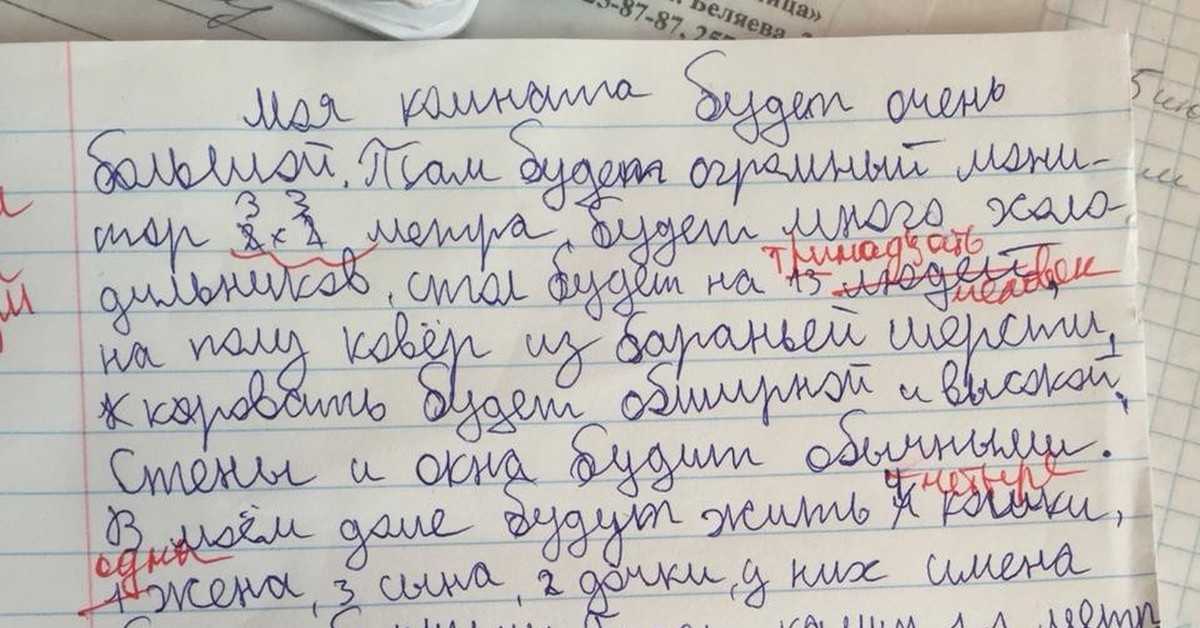 ница»
Беляева
23-87-87, 257
Моя комната будет очень
большой. Там будет огромный мони-
тор 3×3 метра, будет много холо-
тринадцать
дильников, стол будет на 13 людей,
человек
на полу ковёр из бараньей шерсти,
коровать будет обширной и высокой.
Стены и окна будит обычными.
четыре
В моём доме будут жить 4 кошки,
одна
1 жена, 3 сына, 2 дочки, у них имена